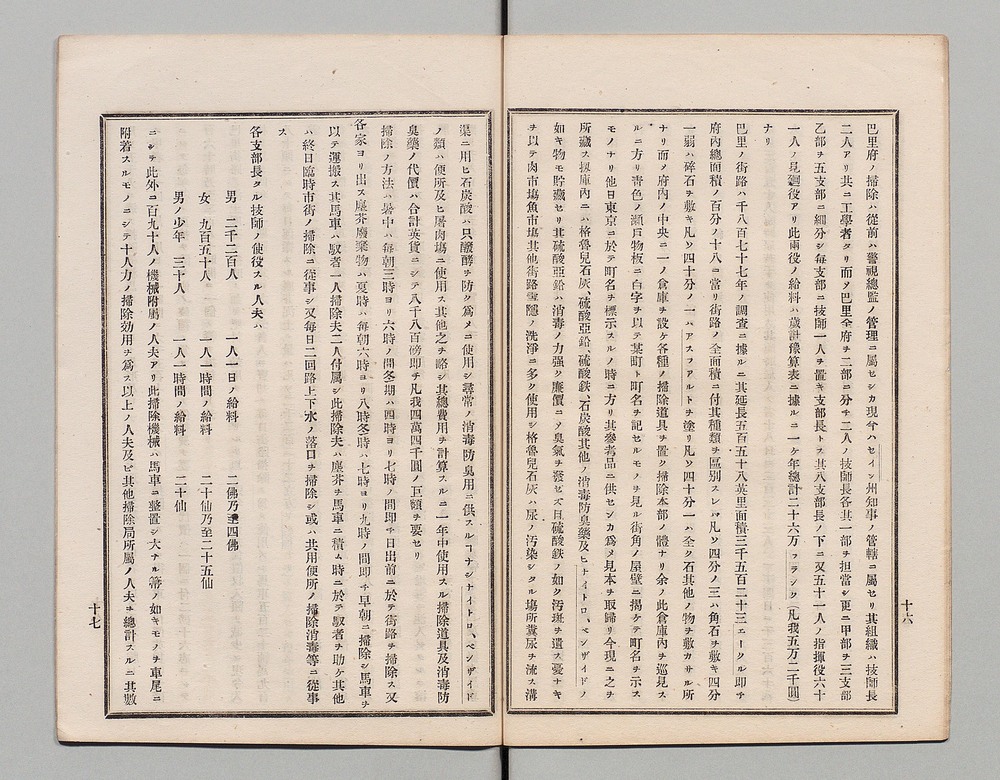 巴里府ノ掃除ハ從前ハ警視總監ノ管理ニ屬セシカ現今ハセイン州知事ノ管轄ニ屬セリ其組織ハ技師長
二人アリ共ニ工學者タリ而メ巴里全府ヲ二部ニ分チ二人ノ技師長各其一部ヲ担當シ更ニ甲部ヲ三支部
乙部ヲ五支部ニ細分シ每支部ニ技師一人ヲ置キ支部長トス其八支部長ノ下ニ又五十一人ノ指揮役六十
一人ノ見廻役アリ此兩役ノ給料ハ歲計豫算表ニ據ルニ一ケ年總計二十六万フランク(凡我五万二千圓)
ナリ
巴里ノ街路ハ千八百七十七年ノ調査ニ據ルニ其延長五百五十八英里面積三千五百二十三エークル即チ
府內總面積ノ百分ノ十八ニ當リ街路ノ全面積ニ付其種類ヲ區別スレハ凡ソ四分ノ三ハ角石ヲ敷キ四分
一弱ハ碎石ヲ敷キ凡ソ四十分ノ一ハアスフアルトヲ塗リ凡ソ四十分一ハ全ク石其他ノ物ヲ敷カサル所
ナリ而ノ府內ノ中央ニ一ノ倉庫ヲ設ケ各種ノ掃除道具ヲ置ク掃除本部ノ體ナリ余ノ此倉庫內ヲ巡見ス
ルニ方リ靑色ノ瀨戶物板ニ白字ヲ以テ某町ト町名ヲ記セルモノヲ見ル街角ノ屋壁ニ揭ケテ町名ヲ示ス
モノナリ他日東京ニ於テ町名ヲ標示スルノ時ニ方リ其參考品ニ供センカ爲メ見本ヲ取歸リ今現ニ之ヲ
所藏ス掃庫內ニハ格魯兒石灰、硫酸亞鉛、硫酸鉄、石炭酸其他ノ消毒防臭藥及ヒナイトロ、ベンザイドノ
如キ物モ貯藏セリ其硫酸亞鉛ハ消毒ノ力强ク廉價ニノ臭氣ヲ發セス且硫酸鉄ノ如ク汚斑ヲ遺スノ憂ナキ
ヲ以テ肉市塲魚市塲其他街路雪隱ノ洗淨ニ多ク使用シ格魯兒石灰ハ尿ノ汚染シタル塲所糞尿ヲ流ス溝
十六
渠ニ用ヒ石炭酸ハ只醱酵ヲ防ク爲メニ使用シ尋常ノ消毒防臭用ニ供スルヿナシナイトロ、ベンザイド
ノ類ハ便所及ヒ屠肉塲ニ使用ス其他之ヲ略シ其總費用ヲ計算スルニ一年中使用スル掃除道具及消毒防
臭藥ノ代價ハ合計英貨ニシテ八千八百磅即チ凡我四萬四千圓ノ巨額ヲ要セリ
掃除ノ方法ハ暑中ハ每朝三時ヨリ六時ノ間冬期ハ四時ヨリ七時ノ間即チ日出前ニ於テ街路ヲ掃除ス又
各家ヨリ出ス塵芥廢棄物ハ夏時ハ每朝六時ヨリ八時冬時ハ七時ヨリ九時ノ間即チ早朝ニ掃除シ馬車ヲ
以テ運搬ス其馬車ハ馭者一人掃除夫二人付屬シ此掃除夫ハ塵芥ヲ馬車ニ積ム時ニ於テ馭者ヲ助ケ其他
ハ終日臨時市街ノ掃除ニ從事シ又每日二回路上下水ノ落口ヲ掃除シ或ハ共用便所ノ掃除消毒等ニ從事
ス
各支部長タル技師ノ使役スル人夫ハ
男 二千二百人 一人一日ノ給料 二佛乃至四佛
女 九百五十人 一人一時間ノ給料 二十仙乃至二十五仙
男ノ少年 三十人 一人一時間ノ給料 二十仙
ニシテ此外ニ百九十人ノ機械附屬ノ人夫アリ此掃除機械ハ馬車ニ整置シ大ナル箒ノ如キモノヲ車尾ニ
附着スルモノニシテ十人力ノ掃除効用ヲ爲ス以上ノ人夫及ビ其他掃除局所屬ノ人夫ヲ總計スルニ其數
十七